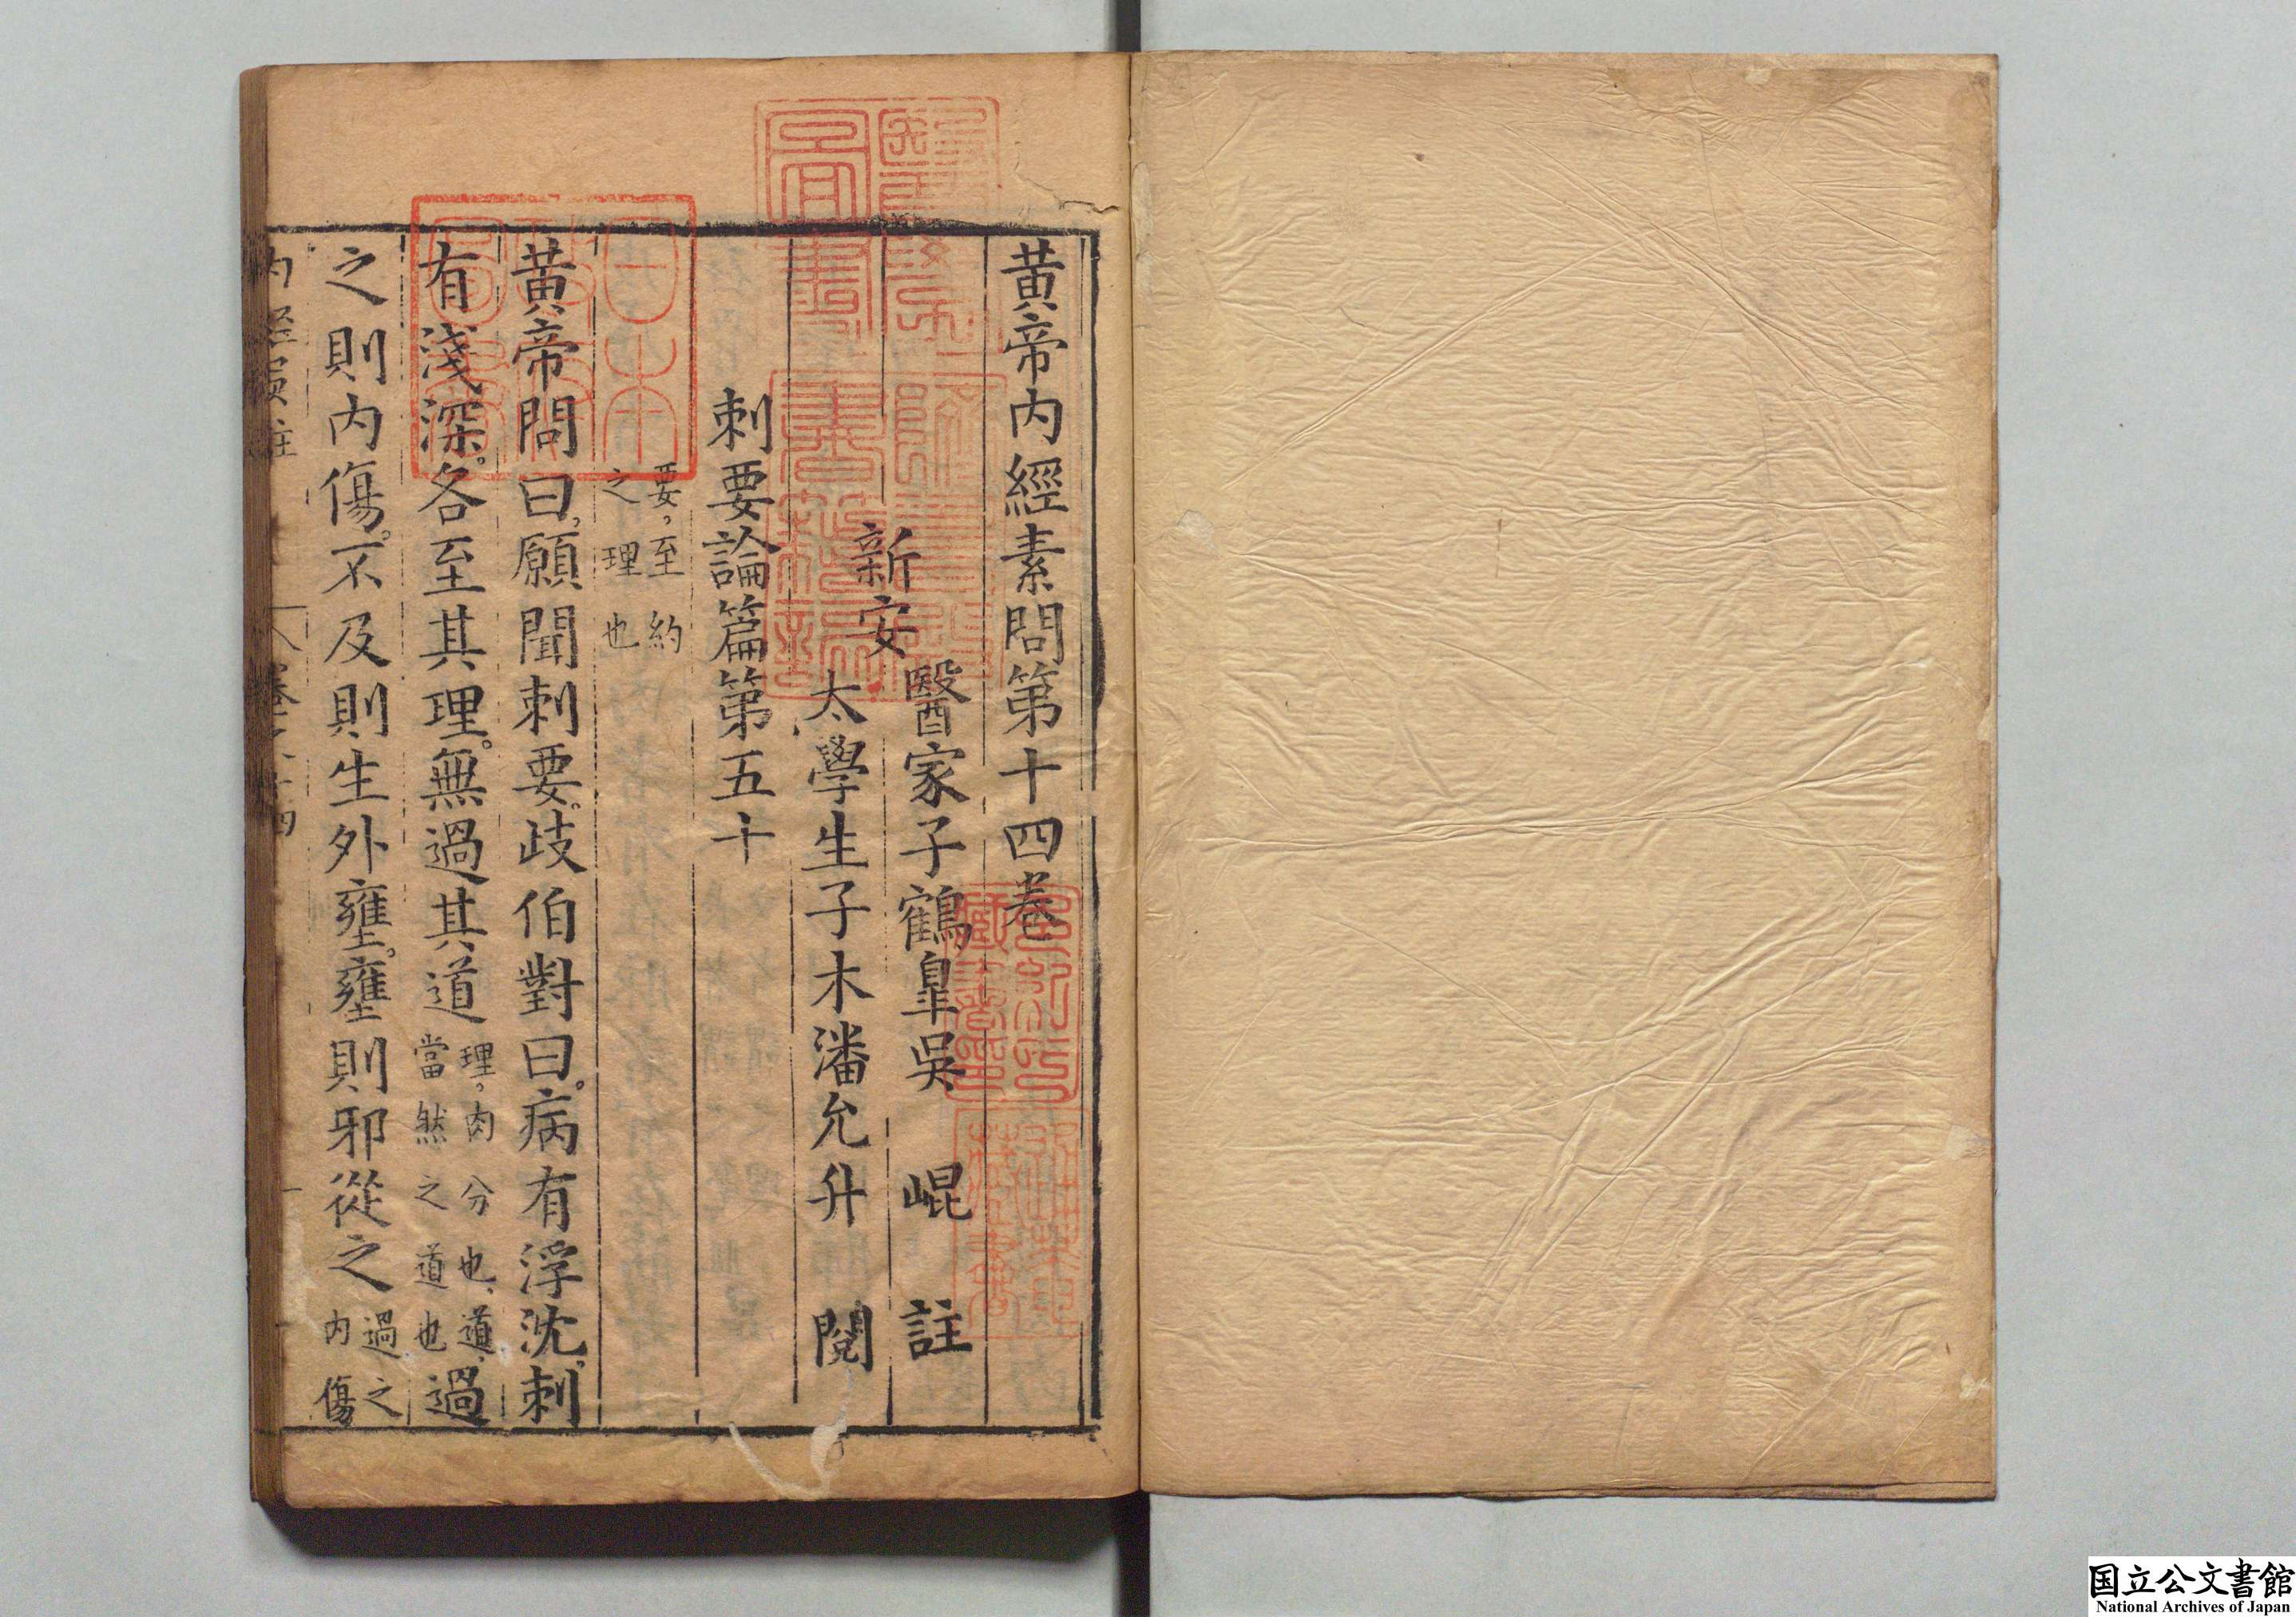 黃帝內經素問第十四卷
新安
醫家子鶴皐吳　崐　註
太學生子木潘允升　閱
刺要論篇第五十
要，至約
之理也
黃帝問曰，願聞刺要。歧伯對曰。病有浮沈。刺
有淺深。各至其理。無過其道
理，肉分也，道，
當然之道也
過
之則內傷。不及則生外壅。壅則邪從之
過之
內傷
卷
国立公文書館
National Archives of Japan